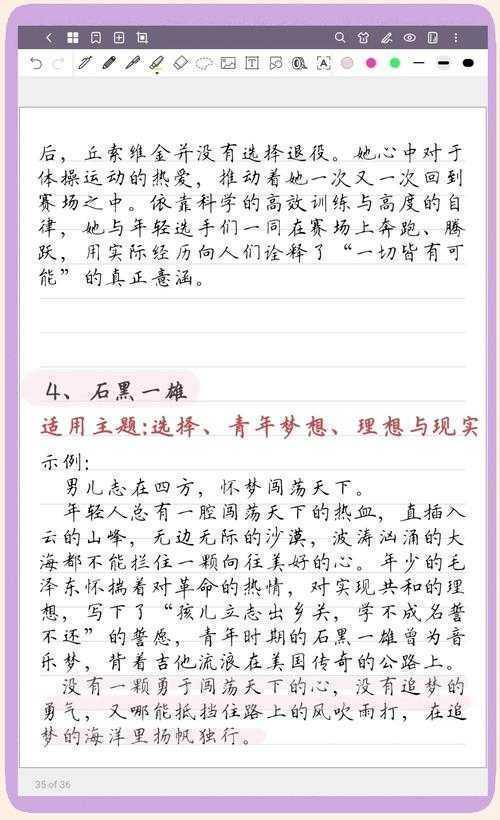 后，丘索维金并没有选择退役。她心中对于
体操运动的热爱，推动着她一次又一次回到
赛场之中。依靠科学的高效训练与高度的自
律，她与年轻选手们一同在赛场上奔跑、腾
跃，用实际经历向人们诠释了“一切皆有可
能”的真正意涵。
4、石黑一雄
适用主题:选择、青年梦想、理想与现实
示例:
男儿志在四方，怀梦闯荡天下。
年轻人总有一腔闯荡天下的热血，直插入
云的山峰，无边无际的沙漠，波涛汹涌的大
海都不能拦住一颗向往美好的心。年少的毛
泽东怀揣着对革命的热情，对实现共和的理
想，写下了“孩儿立志出乡关，学不成名誓
不还”的誓愿，青年时期的石黑一雄曾为音
乐梦，背着吉他流浪在美国传奇的公路上。
没有一颗勇于闯荡天下的心，没有追梦的
勇气，又哪能抵挡住路上的风吹雨打，在追
梦的海洋里扬帆独行。
35 of 36